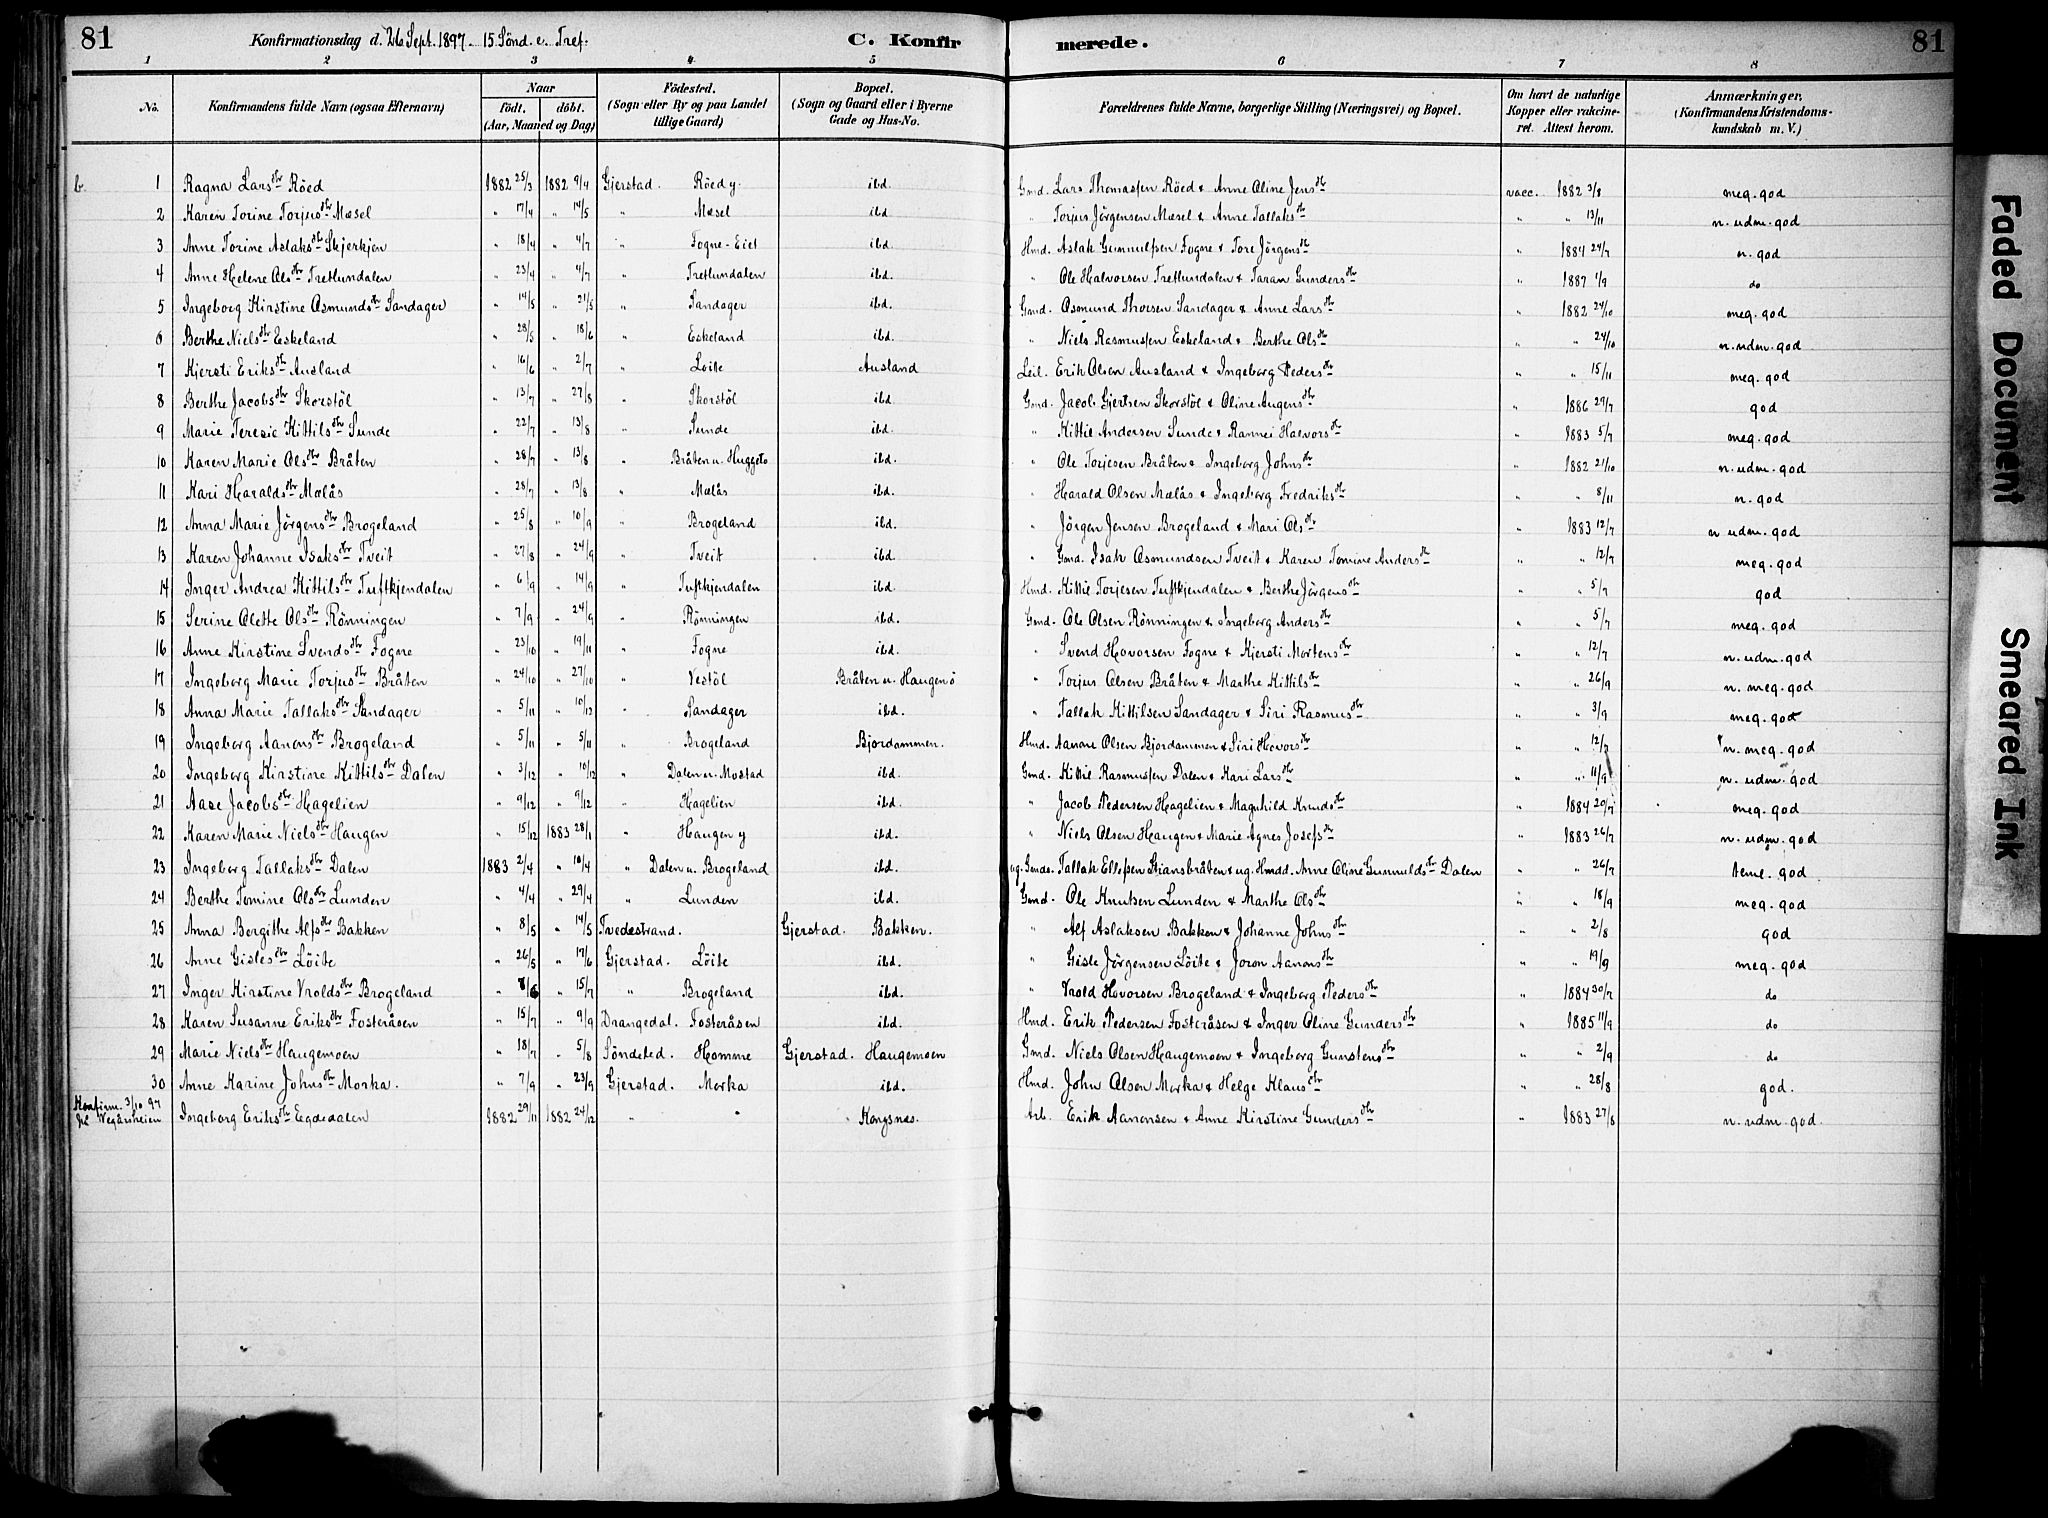 81 Konfirmationsdag d. 26 Sept. 1897. 15 Sönd. e. Tref. C. Konfir merede. 81
1 2 3 4 5 6 7 8
No. Konfirmandens fulde Navn (ogsaa Efternavn) Naar födt. döbt. (Aar, Maaned og Dag) Födested. (Sogn eller By og paa Landet tillige Gaard) Bopæl. (Sogn og Gaard eller i Byerne Gade og Hus-No. Forældrenes fulde Navne, borgerlige Stilling (Næringsvei) og Bopæl. Om havt de naturlige Kopper eller vakcineret. Attest herom. Anmærkninger. (Konfirmandens Kristendomskundskab m. V.)
b. 1 Ragna Lars dtr Röed 1882 25/3 1882 9/4 Gjerstad. Röed y. ibd. Gmd. Lars Thomassen Röed & Anne Oline Jens dtr vacc. 1882 3/8 meg. god
2 Karen Torine Torjus dtr Mæsel " 17/4 " 14/5 " Mæsel ibd. " Torjus Jörgensen Mæsel & Anne Tallaks dtr " " 13/11 n. udm. god
3 Anne Torine Aslaks dtr Skjerkjen " 18/4 " 4/7 " Fogne-Eiet ibd. Hmd. Aslak Gunnulfsen Fogne & Tore Jörgens dtr " 1884 24/7 n. god
4 Anne Helene Ols dtr Tretlundalen " 23/4 " 4/7 " Tretlundalen ibd. " Ole Halvorsen Tretlundalen & Taran Gunders dtr " 1887 1/9 do
5 Ingeborg Kirstine Osmunds dtr Sandager " 14/5 " 21/5 " Sandager ibd. Gmd. Osmund Thorsen Sandager & Anne Lars dtr " 1882 24/10 meg. god
6 Berthe Niels dtr Eskeland " 28/5 " 18/6 " Eskeland ibd. " Niels Rasmussen Eskeland & Berthe Ols dtr " " 24/10 n. udm. god
7 Kjersti Eriks dtr Ausland " 16/6 " 2/7 " Löite Ausland Leil. Erik Olsen Ausland & Ingeborg Peders dtr " " 15/11 meg. god
8 Berthe Jacobs dtr Skorstöl " 13/7 " 27/8 " Skorstöl ibd. Gmd. Jacob Gjertsen Skorstöl & Oline Augens dtr " 1886 29/7 god
9 Marie Teresie Kittils dtr Sunde " 22/7 " 13/8 " Sunde ibd. " Kittil Andersen Sunde & Rannei Halvors dtr " 1883 5/7 meg. god
10 Karen Marie Ols dtr Bråten " 28/7 " 13/8 " Bråten u. Huggeto ibd. " Ole Torjesen Bråten & Ingeborg Johns dtr " 1882 21/10 n. udm. god
11 Kari Haralds dtr Mælås " 28/7 " 13/8 " Mælås ibd. " Harald Olsen Mælås & Ingeborg Fredriks dtr " " 8/11 n. god
12 Anna Marie Jörgens dtr Brogeland " 25/8 " 10/9 " Brogeland ibd. " Jörgen Jensen Brogeland & Mari Ols dtr " 1883 12/7 n udm. god
13 Karen Johanne Isaks dtr Tveit " 27/8 " 24/9 " Tveit ibd. " Gmd. Isak Osmundsen Tveit & Karen Tomine Anders dtr " " 12/7 meg. god
14 Inger Andrea Kittils dtr Tuftkjendalen " 6/9 " 14/9 " Tuftkjendalen ibd. Hmd. Kittil Torjesen Tuftkjendalen & Berthe Jörgens dtr " " 5/7 god
15 Serine Olette Ols dtr Rönningen " 7/9 " 24/9 " Rönningen ibd. Gmd. Ole Olsen Rönningen & Ingeborg Anders dtr " " 5/7 meg. god
16 Anne Kirstine Svends dtr Fogne " 23/10 " 19/11 " Fogne ibd. " Svend Hovorsen Fogne & Kjersti Mortens dtr " " 12/7 n. udm. god
17 Ingeborg Marie Torjus dtr Bråten " 24/10 " 27/10 " Vestöl Bråten u. Haugenö " Torjus Olsen Bråten & Marthe Kittils dtr " " 26/9 n. meg. god
18 Anna Marie Tallaks dtr Sandager " 5/11 " 10/12 " Sandager ibd. " Tallak Kittilsen Sandager & Siri Rasmus dtr " " 3/9 meg. god
19 Ingeborg Aanons dtr Brogeland " 5/11 " 5/11 " Brogeland Bjordammen. Hmd. Aanon Olsen Bjordammen & Siri Hovors dtr " " 12/7 n. meg. god
20 Ingeborg Kirstine Kittils dtr Dalen " 3/12 " 10/12 " Dalen u. Mostad ibd. Gmd. Kittil Rasmussen Dalen & Kari Lars dtr " " 11/9 n. udm. god
21 Aase Jacobs dtr Hagelien " 9/12 " 9/12 " Hagelien ibd. " Jacob Pedersen Hagelien & Magnhild Knuds dtr " 1884 20/7 meg. god
22 Karen Marie Niels dtr Haugen " 15/12 1883 28/1 " Haugen y ibd. " Niels Olsen Haugen & Marie Agnes Josefs dtr " 1883 26/7 n. udm. god
23 Ingeborg Tallaks dtr Dalen 1883 2/4 " 10/4 " Dalen u. Brogeland ibd. ug. Gmds. Tallak Ellefsen Stiansbråten & ug. Hmdd. Anne Oline Gunnulds dtr Dalen " " 26/7 teml. god
24 Berthe Tomine Ols dtr Lunden " 4/4 " 29/4 " Lunden ibd. Gmd. Ole Knutsen Lunden & Marthe Ols dtr " " 18/9 meg. god
25 Anna Bergithe Alfs dtr Bakken " 8/5 " 14/5 Tvedestrand. Gjerstad. Bakken. " Alf Aslaksen Bakken & Johanne Johns dtr " " 2/8 god
26 Anne Gisles dtr Löite " 26/5 " 17/6 Gjerstad. Löite ibd. " Gisle Jörgensen Löite & Joron Aanons dtr " " 19/9 meg. god
27 Inger Kirstine Vrolds dtr Brogeland " 8/6 " 15/7 " Brogeland ibd. " Vrold Hovorsen Brogeland & Ingeborg Peders dtr " 1884 30/7 do
28 Karen Susanne Eriks dtr Fosteråsen " 15/7 " 9/9 Drangedal. Fosteråsen ibd. Hmd. Erik Pedersen Fosteråsen & Inger Oline Gunders dtr " 1885 11/9 do
29 Marie Niels dtr Haugemoen " 18/7 " 5/8 Söndeled. Homme Gjerstad. Haugemoen Gmd. Niels Olsen Haugemoen & Ingeborg Gunstens dtr " " 2/9 do
30 Anne Karine Johns dtr Morka. " 7/9 " 23/9 Gjerstad. Morka ibd. Hmd. John Olsen Morka & Helge Klaus dtr " " 28/8 god.
Konfirm. 3/10 97 på Wegårsheien Ingeborg Eriks dtr Egdedalen 1882 29/11 1882 24/12 " " Kongsnæs. Arb. Erik Aanonsen & Anne Kirstine Gunders dtr " 1883 27/8 n. udm. god.
Faded Document
Smeared Ink